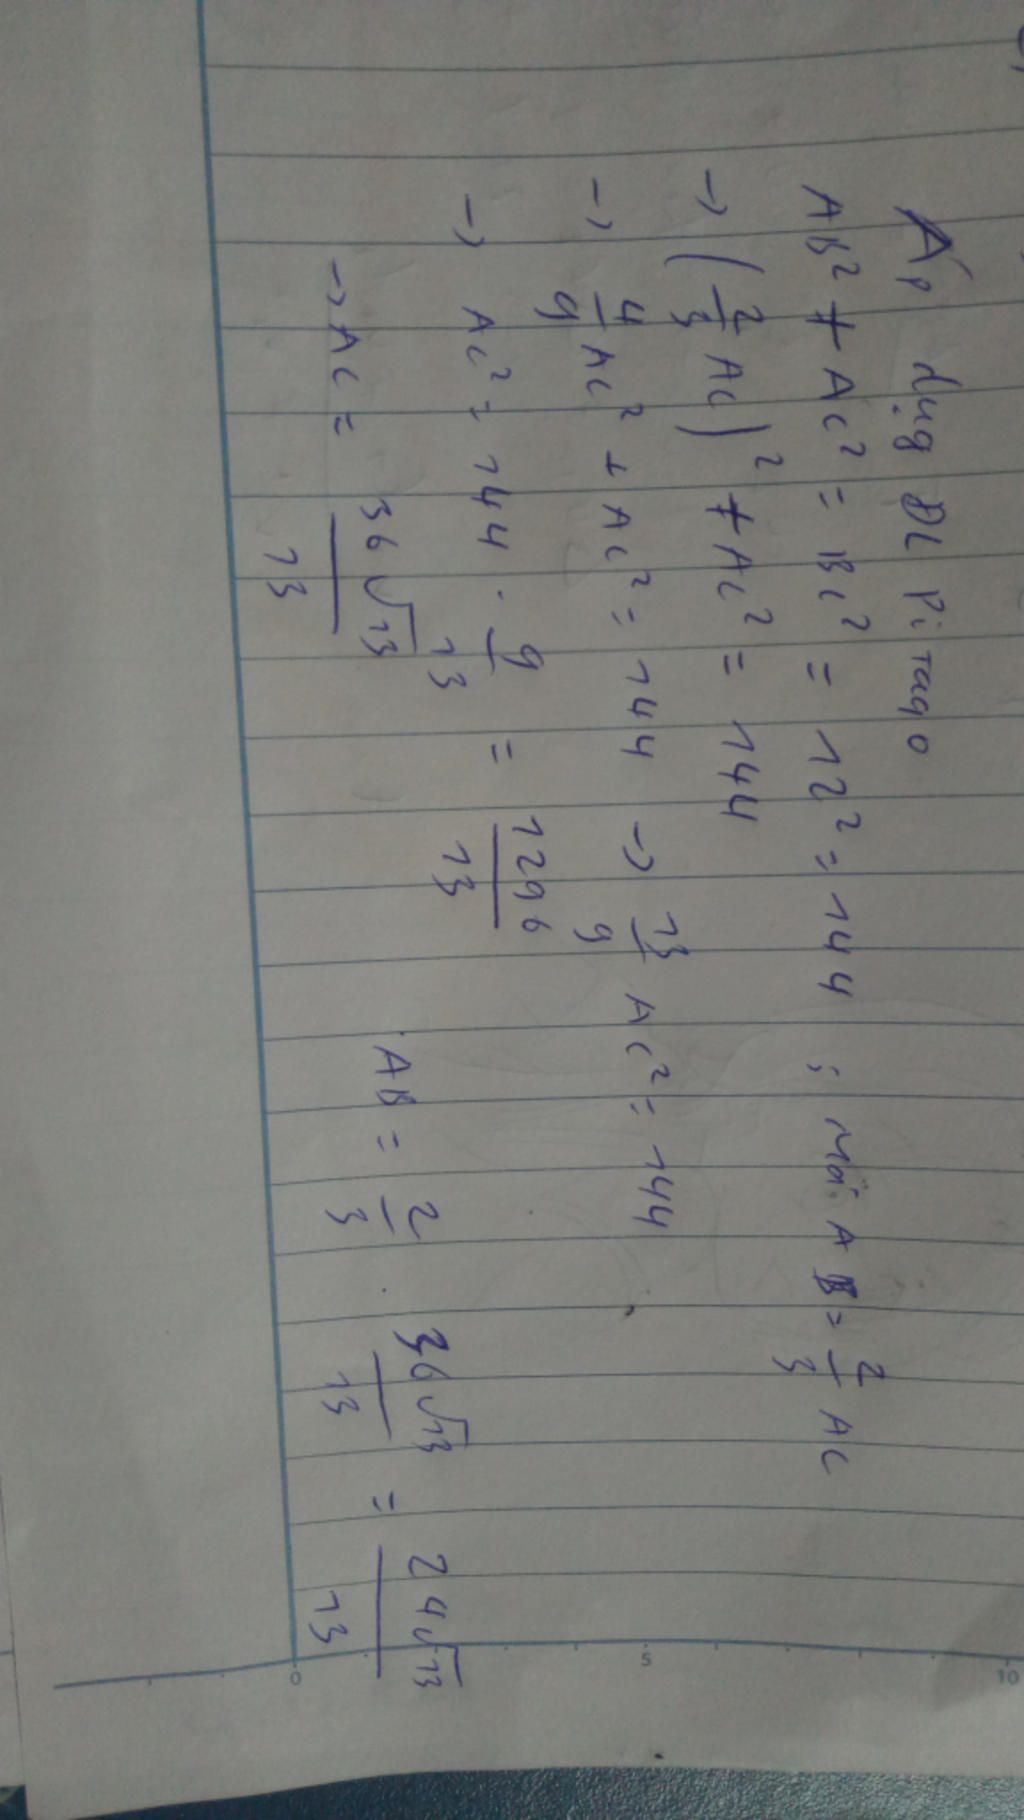 Áp dụg ĐL Pi tago
AB² + AC² = BC² = 12² = 144 ; mà AB = 2/3 AC
→ (2/3 AC)² + AC² = 144
→ 4/9 AC² + AC² = 144 → 13/9 AC² = 144
→ AC² = 144 . 9/13 = 1296/13
→ AC = 36√13/13 AB = 2/3 . 36√13/13 = 24√13/13
0 5 10